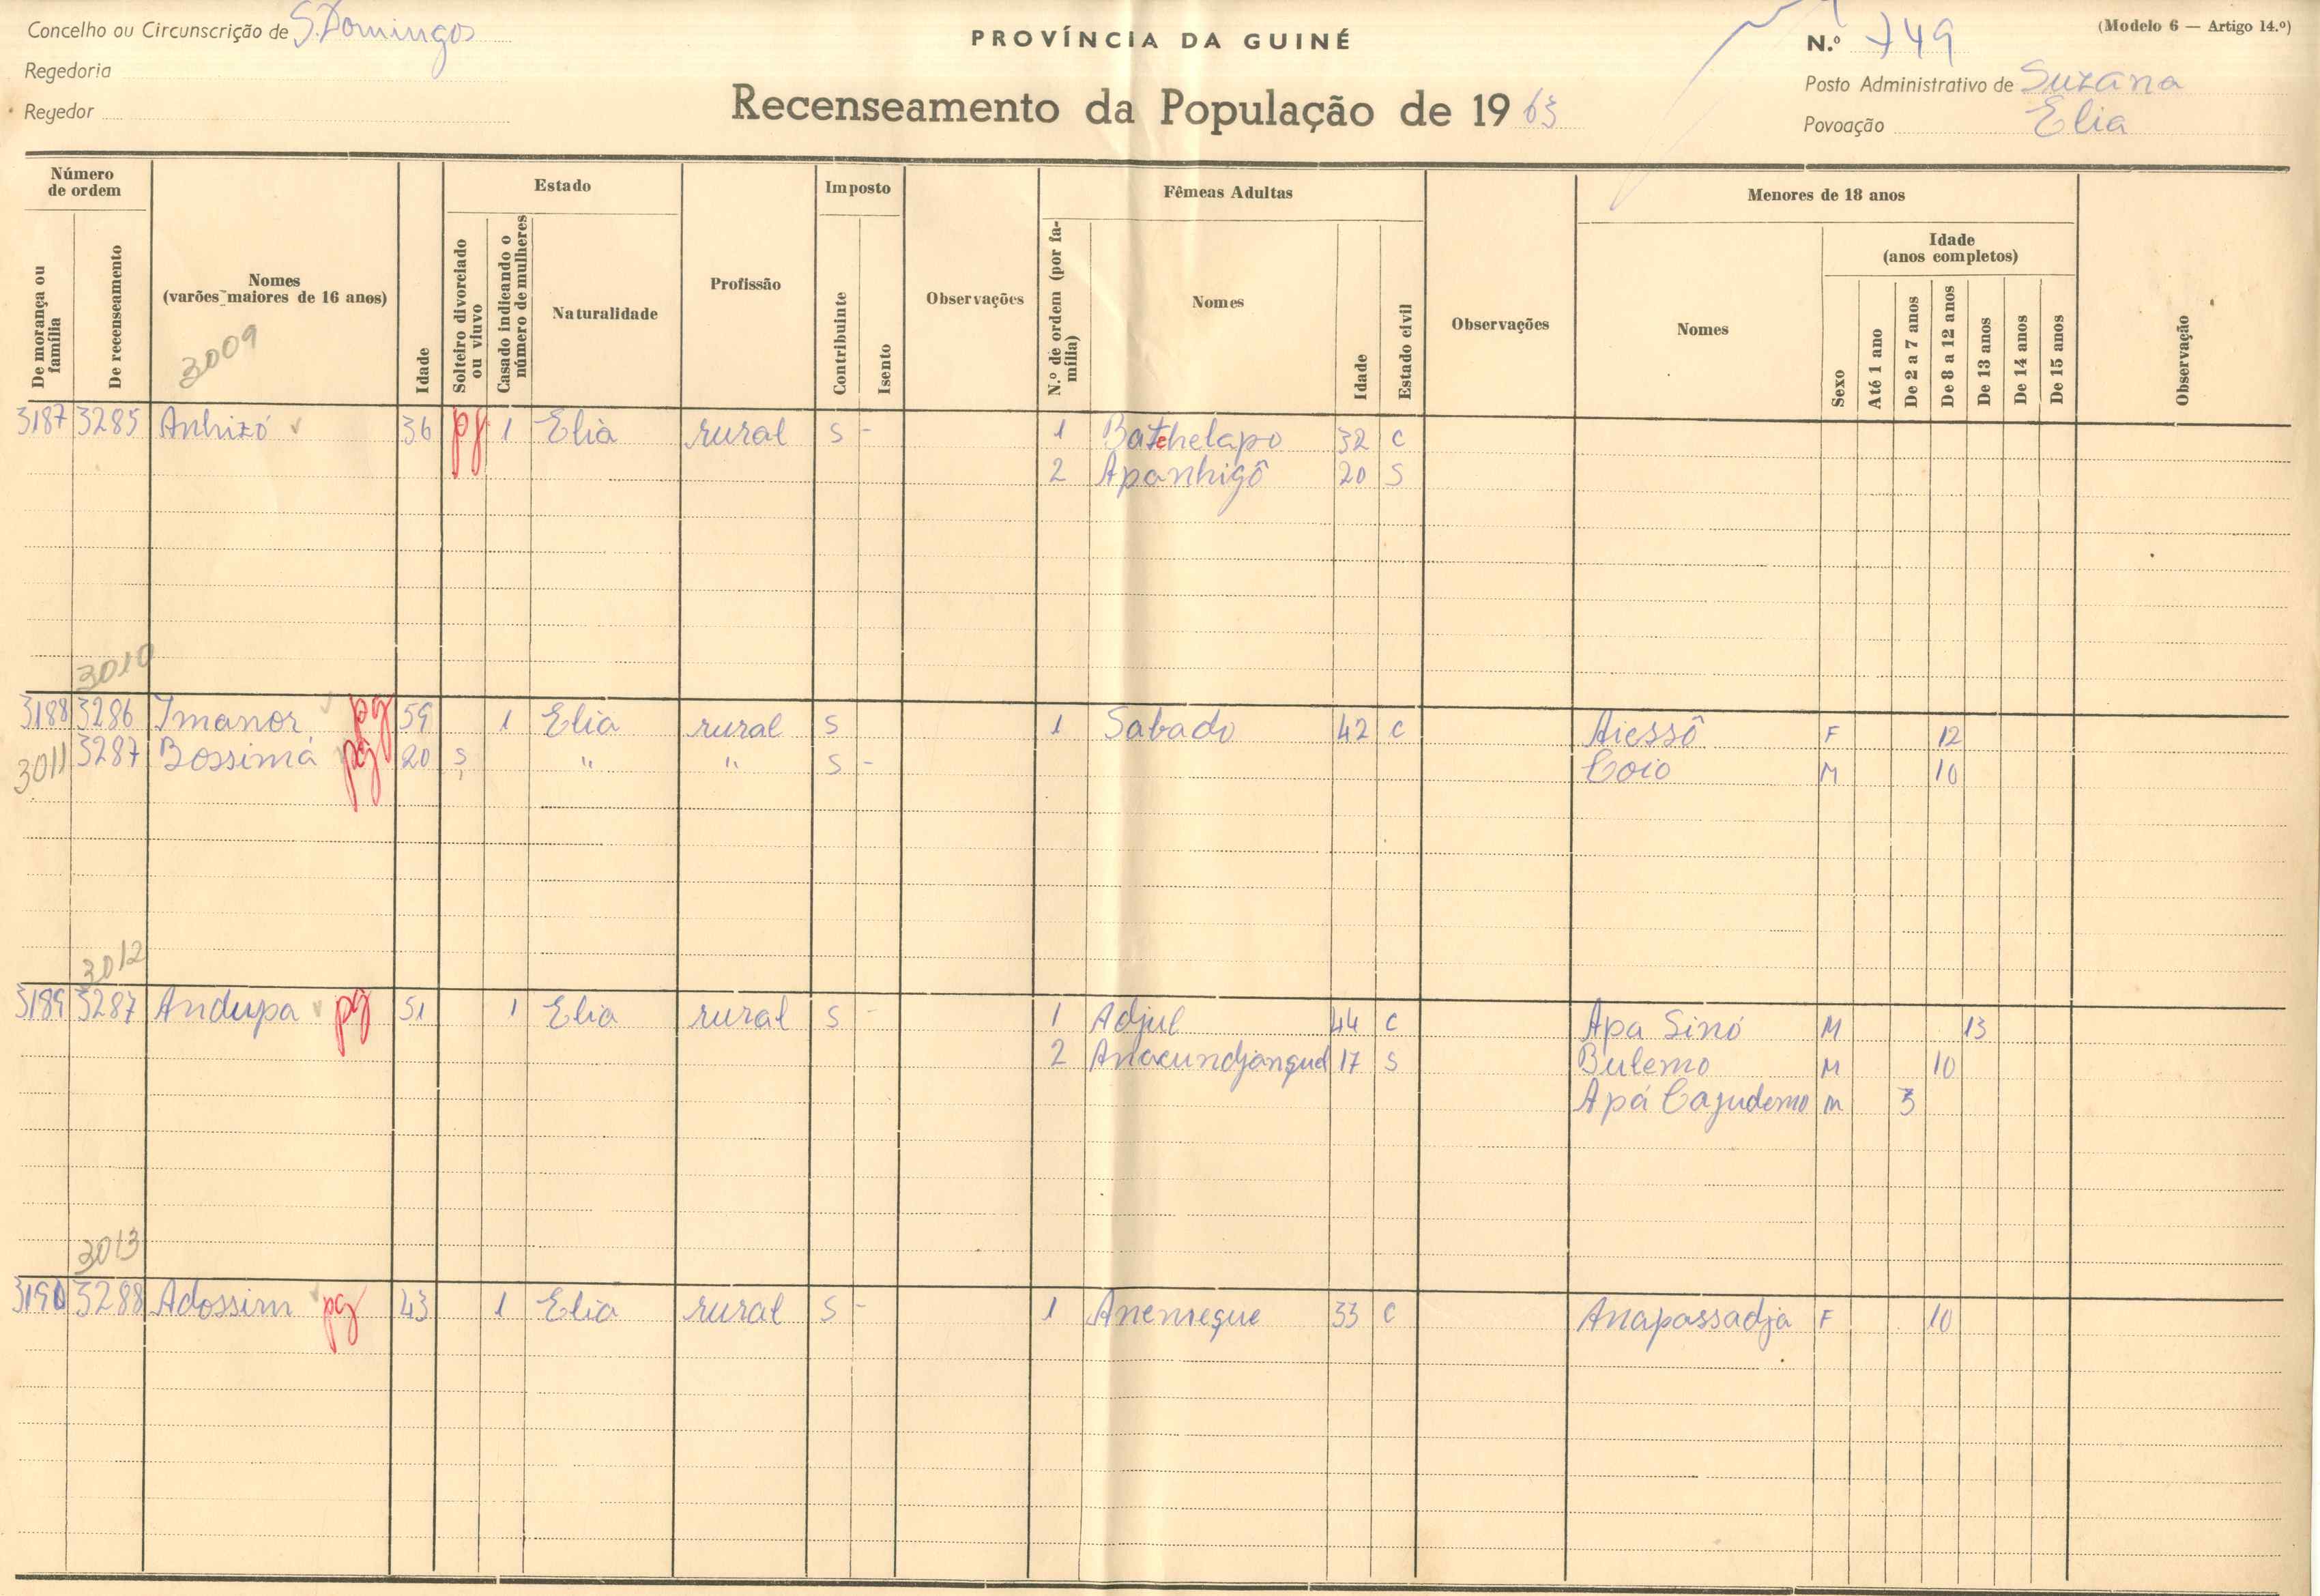 Concelho ou Circunscrição de S. Domingos
PROVÍNCIA DA GUINÉ
N.º 749
(Modelo 6 — Artigo 14.º)
Regedoria
Recenseamento da População de 1963
Posto Administrativo de Suzana
Regedor
Povoação Elia
Número de ordem
De morança ou família
De recenseamento
Nomes
(varões maiores de 16 anos)
3009
Idade
Estado
Solteiro divorciado ou viuvo
Casado indicando o número de mulheres
Naturalidade
Profissão
Imposto
Contribuinte
Isento
Observações
Fêmeas Adultas
N.º de ordem (por família)
Nomes
Idade
Estado civil
Observações
Menores de 18 anos
Nomes
Sexo
Idade
(anos completos)
Até 1 ano
De 2 a 7 anos
De 8 a 12 anos
De 13 anos
De 14 anos
De 15 anos
Observação
3187 3285 Anhizó 36 pg 1 Elia rural S - 1 Batchelapo 32 C
2 Apanhigô 20 S
3010
3188 3286 Imanor pg 59 1 Elia rural S 1 Sabado 42 C Aiessô F 12
3011 3287 Bossimá pg 20 S " " S - Coio M 10
3012
3189 3287 Andupa pg 51 1 Elia rural S - 1 Adjul 44 C Apa Sinó M 13
2 Anacundjangud 17 S Bulemo M 10
Apá Cajudemo M 3
3013
3190 3288 Adossim pg 43 1 Elia rural S - 1 Anemeque 33 C Anapassadja F 10